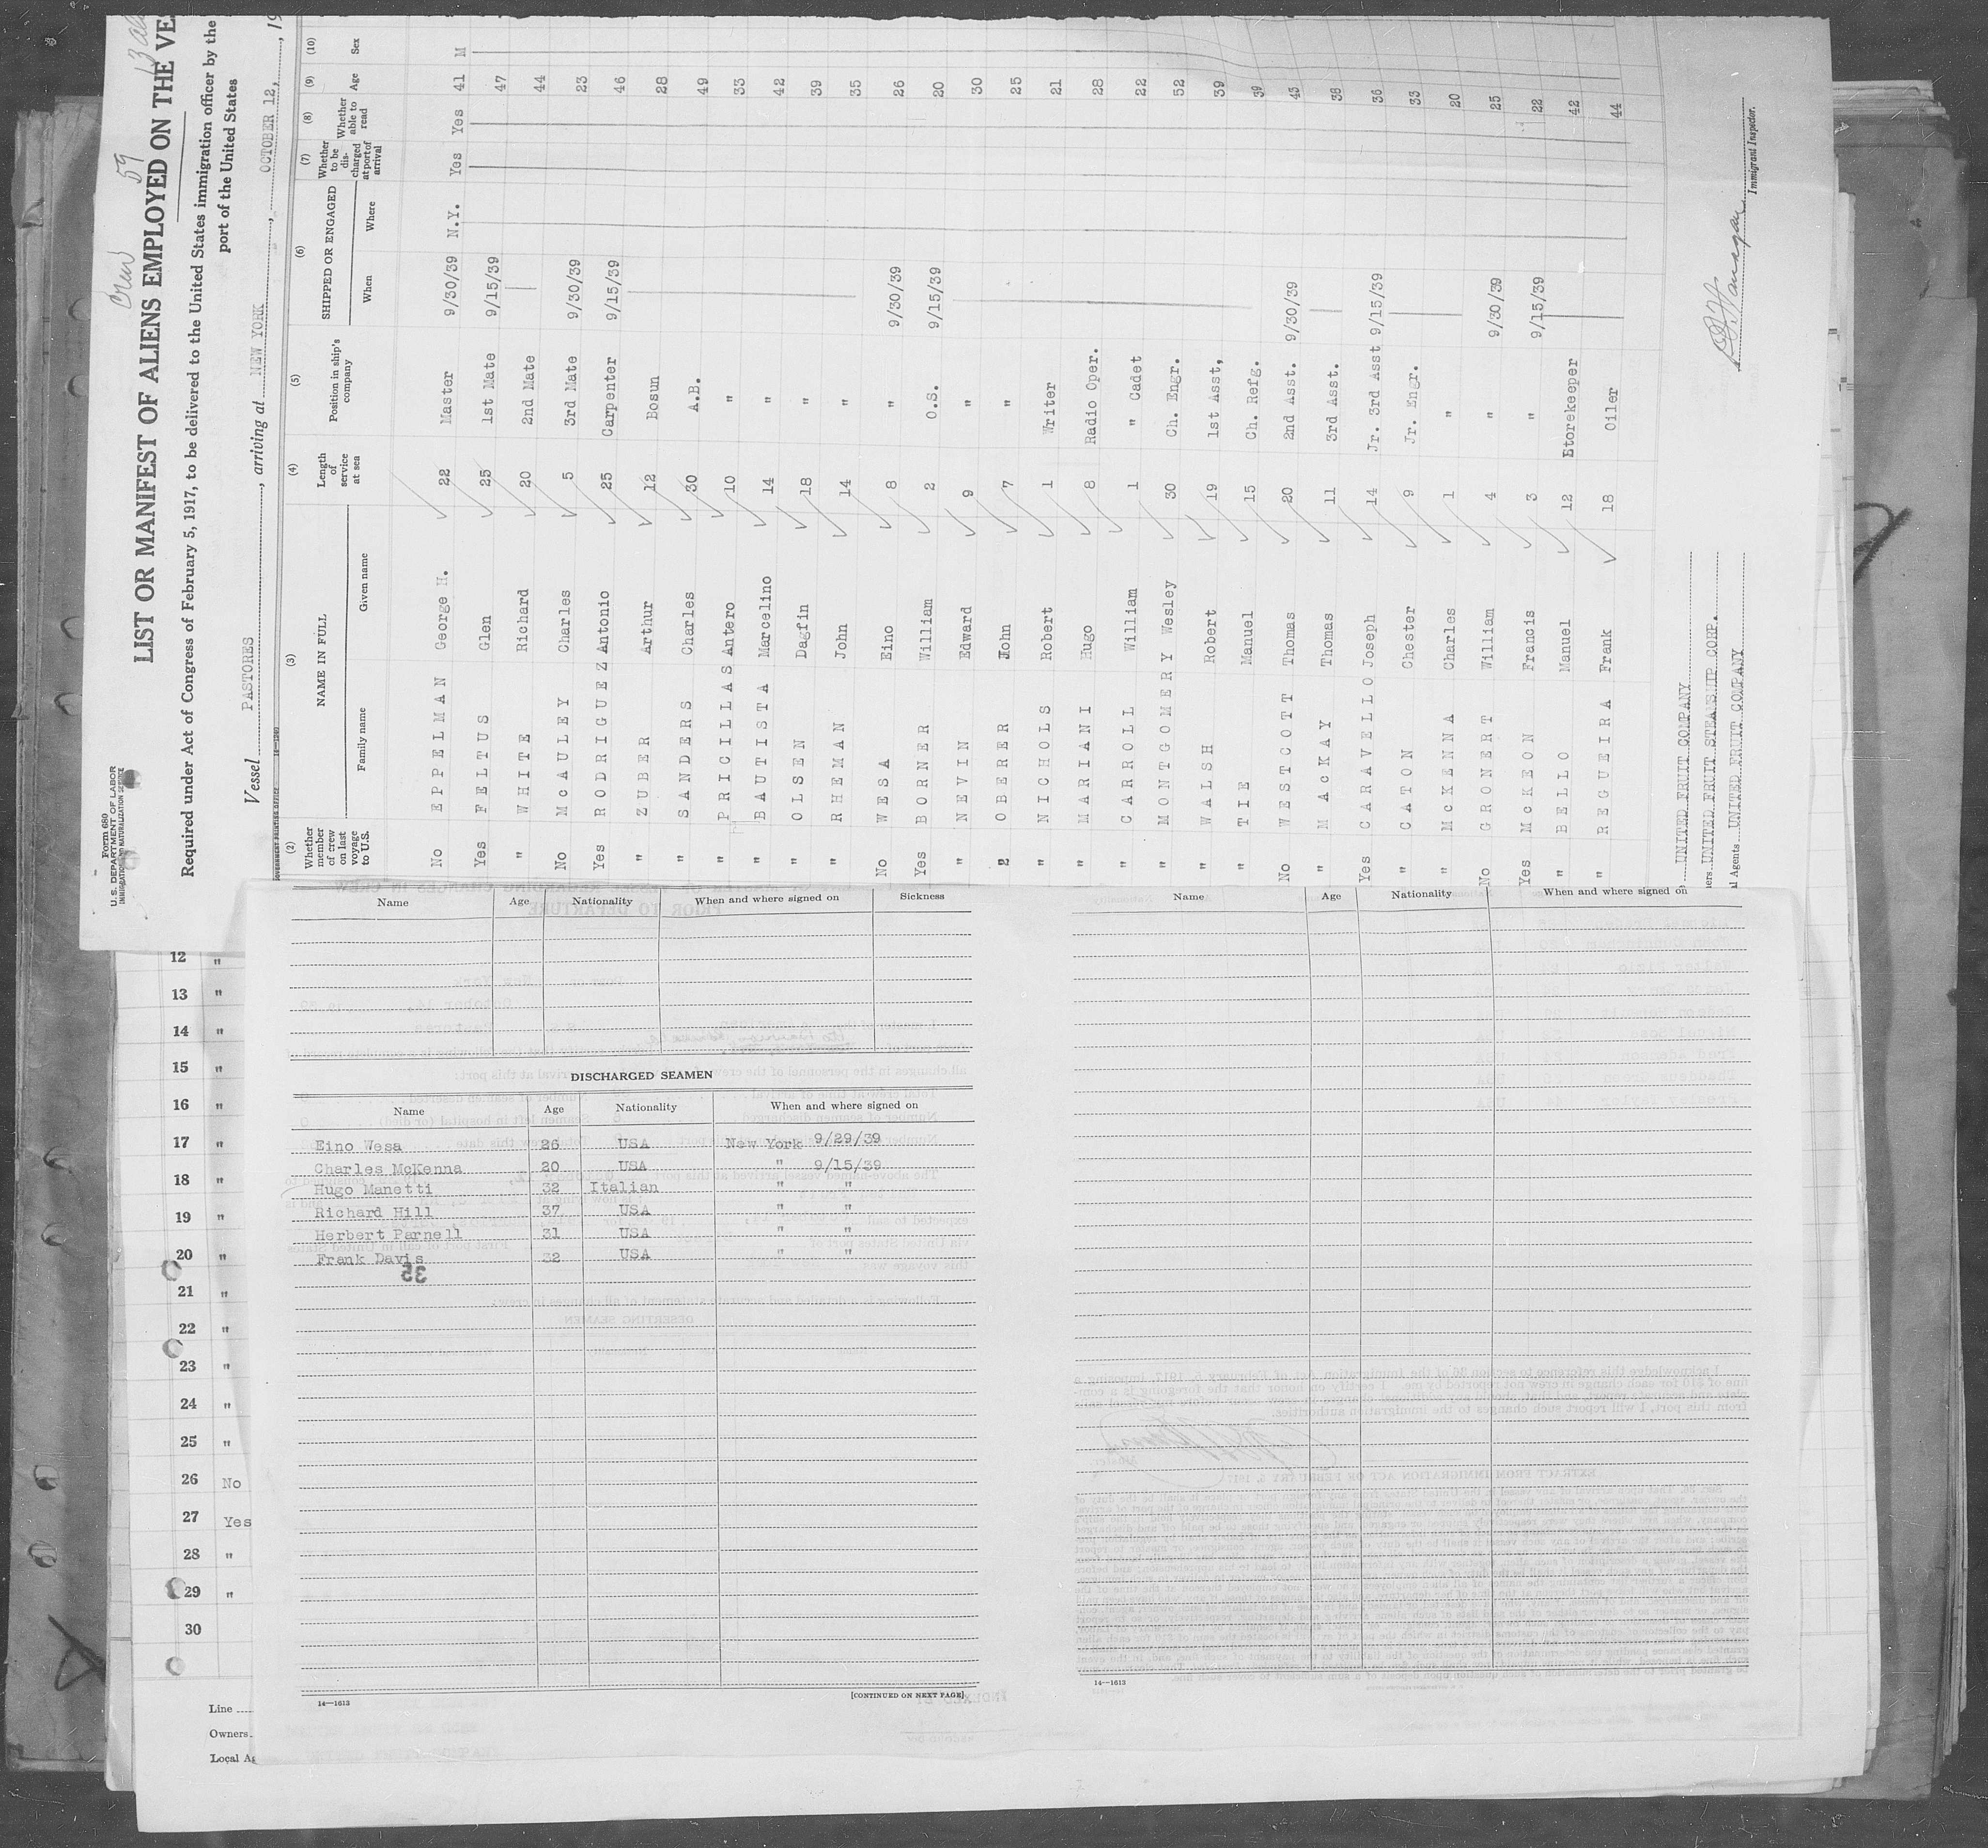 Form 680
U. S. DEPARTMENT OF LABOR
IMMIGRATION AND NATURALIZATION SERVICE
Crew 59
LIST OR MANIFEST OF ALIENS EMPLOYED ON THE VE
Required under Act of Congress of February 5, 1917, to be delivered to the United States immigration officer by the
port of the United States
Vessel PASTORES, arriving at NEW YORK, OCTOBER 12, 19
GOVERNMENT PRINTING OFFICE 14—1240
(2) (3) (4) (5) (6) (7) (8) (9) (10)
Whether member of crew on last voyage to U.S. NAME IN FULL Family name Given name Length of service at sea Position in ship's company SHIPPED OR ENGAGED When Where Whether to be discharged at port of arrival Whether able to read Age Sex
No EPPELMAN George H. 22 Master 9/30/39 N.Y. Yes Yes 41 M
Yes FELTUS Glen 25 1st Mate 9/15/39 47
" WHITE Richard 20 2nd Mate 44
No McAULEY Charles 5 3rd Mate 9/30/39 23
Yes RODRIGUEZ Antonio 25 Carpenter 9/15/39 46
" ZUBER Arthur 12 Bosun 28
" SANDERS Charles 30 A.B. 49
" PRICILLAS Antero 10 " 33
" BAUTISTA Marcelino 14 " 42
" OLSEN Dagfin 18 " 39
" RHEMAN John 14 " 35
No WESA Eino 8 " 9/30/39 26
Yes BORNER William 2 O.S. 9/15/39 20
" NEVIN Edward 9 " 30
" OBERER John 7 " 25
" NICHOLS Robert 1 Writer 21
" MARIANI Hugo 8 Radio Oper. 28
" CARROLL William 1 " Cadet 22
" MONTGOMERY Wesley 30 Ch. Engr. 52
" WALSH Robert 19 1st Asst, 39
" TIE Manuel 15 Ch. Refg. 39
No WESTCOTT Thomas 20 2nd Asst. 9/30/39 43
" MAcKAY Thomas 11 3rd Asst. 38
Yes CARAVELLO Joseph 14 Jr. 3rd Asst 9/15/39 36
" CATON Chester 9 Jr. Engr. 33
" McKENNA Charles 1 " 20
No GRONERT William 4 " 9/30/39 25
Yes McKEON Francis 3 " 9/15/39 22
" BELLO Manuel 12 Etorekeeper 42
" REGUEIRA Frank 18 Oiler 44
UNITED FRUIT COMPANY
ners. UNITED FRUIT STEAMSHIP CORP.
l Agents UNITED FRUIT COMPANY
Immigrant Inspector.
12 "
13 "
14 "
15 "
16 "
17 "
18 "
19 "
20 "
21 "
22 "
23 "
24 "
25 "
26 No
27 Yes
28 "
29 "
30
Line
Owners
Local Ag
Name Age Nationality When and where signed on Sickness
DISCHARGED SEAMEN
Name Age Nationality When and where signed on
Eino Wesa 26 USA New York 9/29/39
Charles McKenna 20 USA " 9/15/39
Hugo Manetti 32 Italian " "
Richard Hill 37 USA " "
Herbert Parnell 31 USA " "
Frank Davis 32 USA " "
35
14—1613
[CONTINUED ON NEXT PAGE]
Name Age Nationality When and where signed on
14—1613